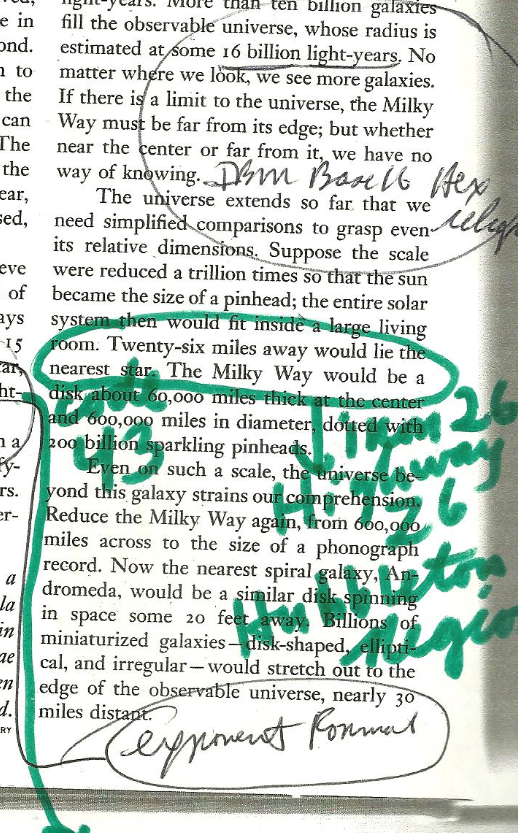 light-years. More than ten billion galaxies
fill the observable universe, whose radius is
estimated at some 16 billion light-years. No
matter where we look, we see more galaxies.
If there is a limit to the universe, the Milky
Way must be far from its edge; but whether
near the center or far from it, we have no
way of knowing. IBM Base 16 Hex
The universe extends so far that we
need simplified comparisons to grasp even
its relative dimensions. Suppose the scale
were reduced a trillion times so that the sun
became the size of a pinhead; the entire solar
system then would fit inside a large living
room. Twenty-six miles away would lie the
nearest star. The Milky Way would be a
disk about 60,000 miles thick at the center
and 600,000 miles in diameter, dotted with
200 billion sparkling pinheads.
Even on such a scale, the universe be-
yond this galaxy strains our comprehension.
Reduce the Milky Way again, from 600,000
miles across to the size of a phonograph
record. Now the nearest spiral galaxy, An-
dromeda, would be a similar disk spinning
in space some 20 feet away. Billions of
miniaturized galaxies—disk-shaped, ellipti-
cal, and irregular—would stretch out to the
edge of the observable universe, nearly 30
miles distant.
exponent Ronmal
43
26
way
26
e in
ond.
n to
the
can
The
the
ear,
sed,
eve
of
ays
15
tar,
ht-
n a
fy-
rs.
er-
a
la
in
ae
en
d.
RY